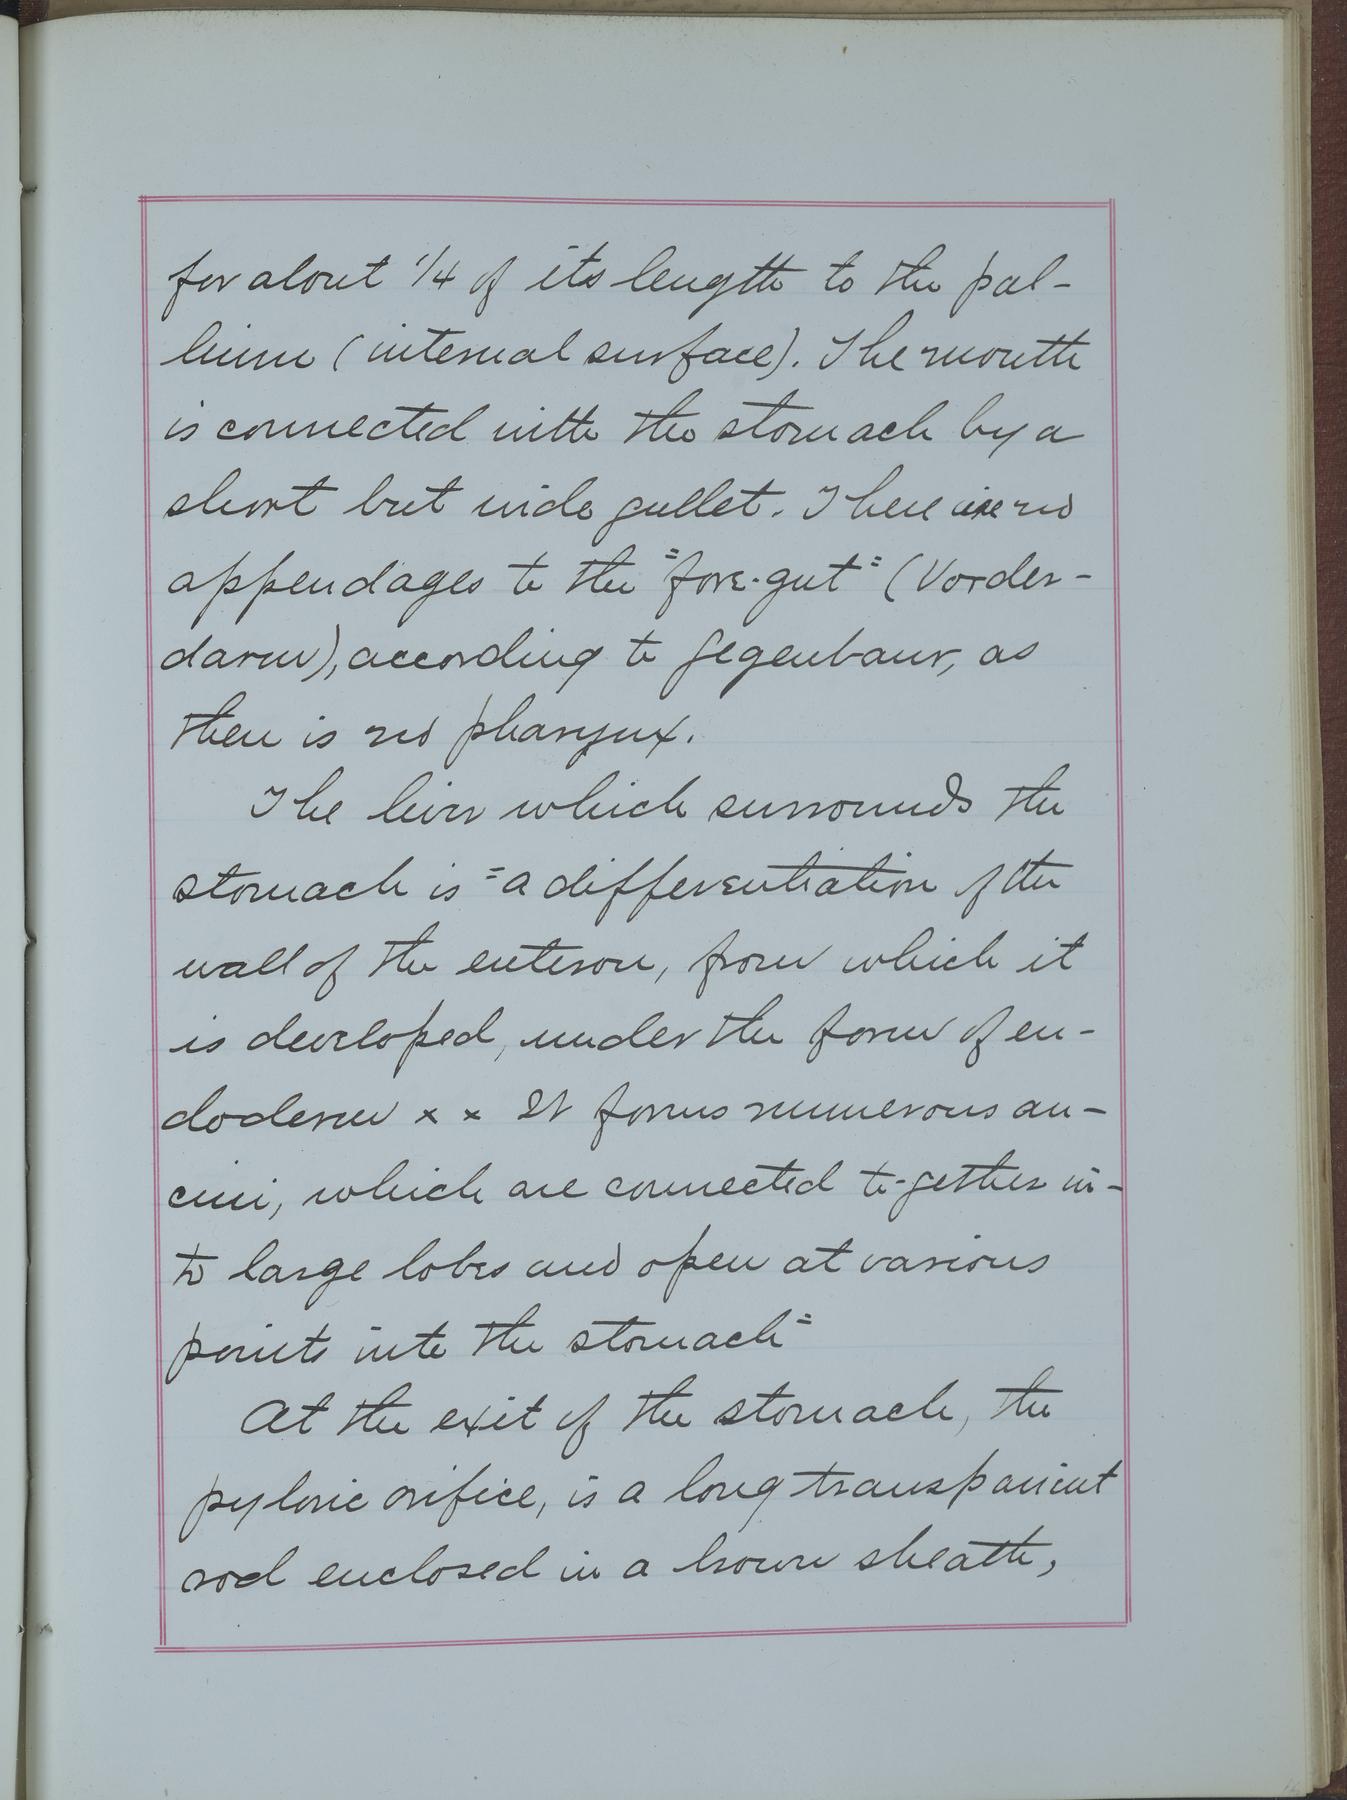 for about 1/4 of its length to the pal-
lium (internal surface). The mouth
is connected with the stomach by a
short but wide gullet. There are no
appendages to the "fore-gut" (Vorder-
darm), according to Gegenbaur, as
there is no pharynx.
The liver which surrounds the
stomach is "a differentiation of the
wall of the enteron, from which it
is developed, under the form of en-
doderm x x It forms numerous au-
cini, which are connected to-gether in-
to large lobes and open at various
points into the stomach"
At the exit of the stomach, the
pyloric orifice, is a long transparent
rod enclosed in a brown sheath,